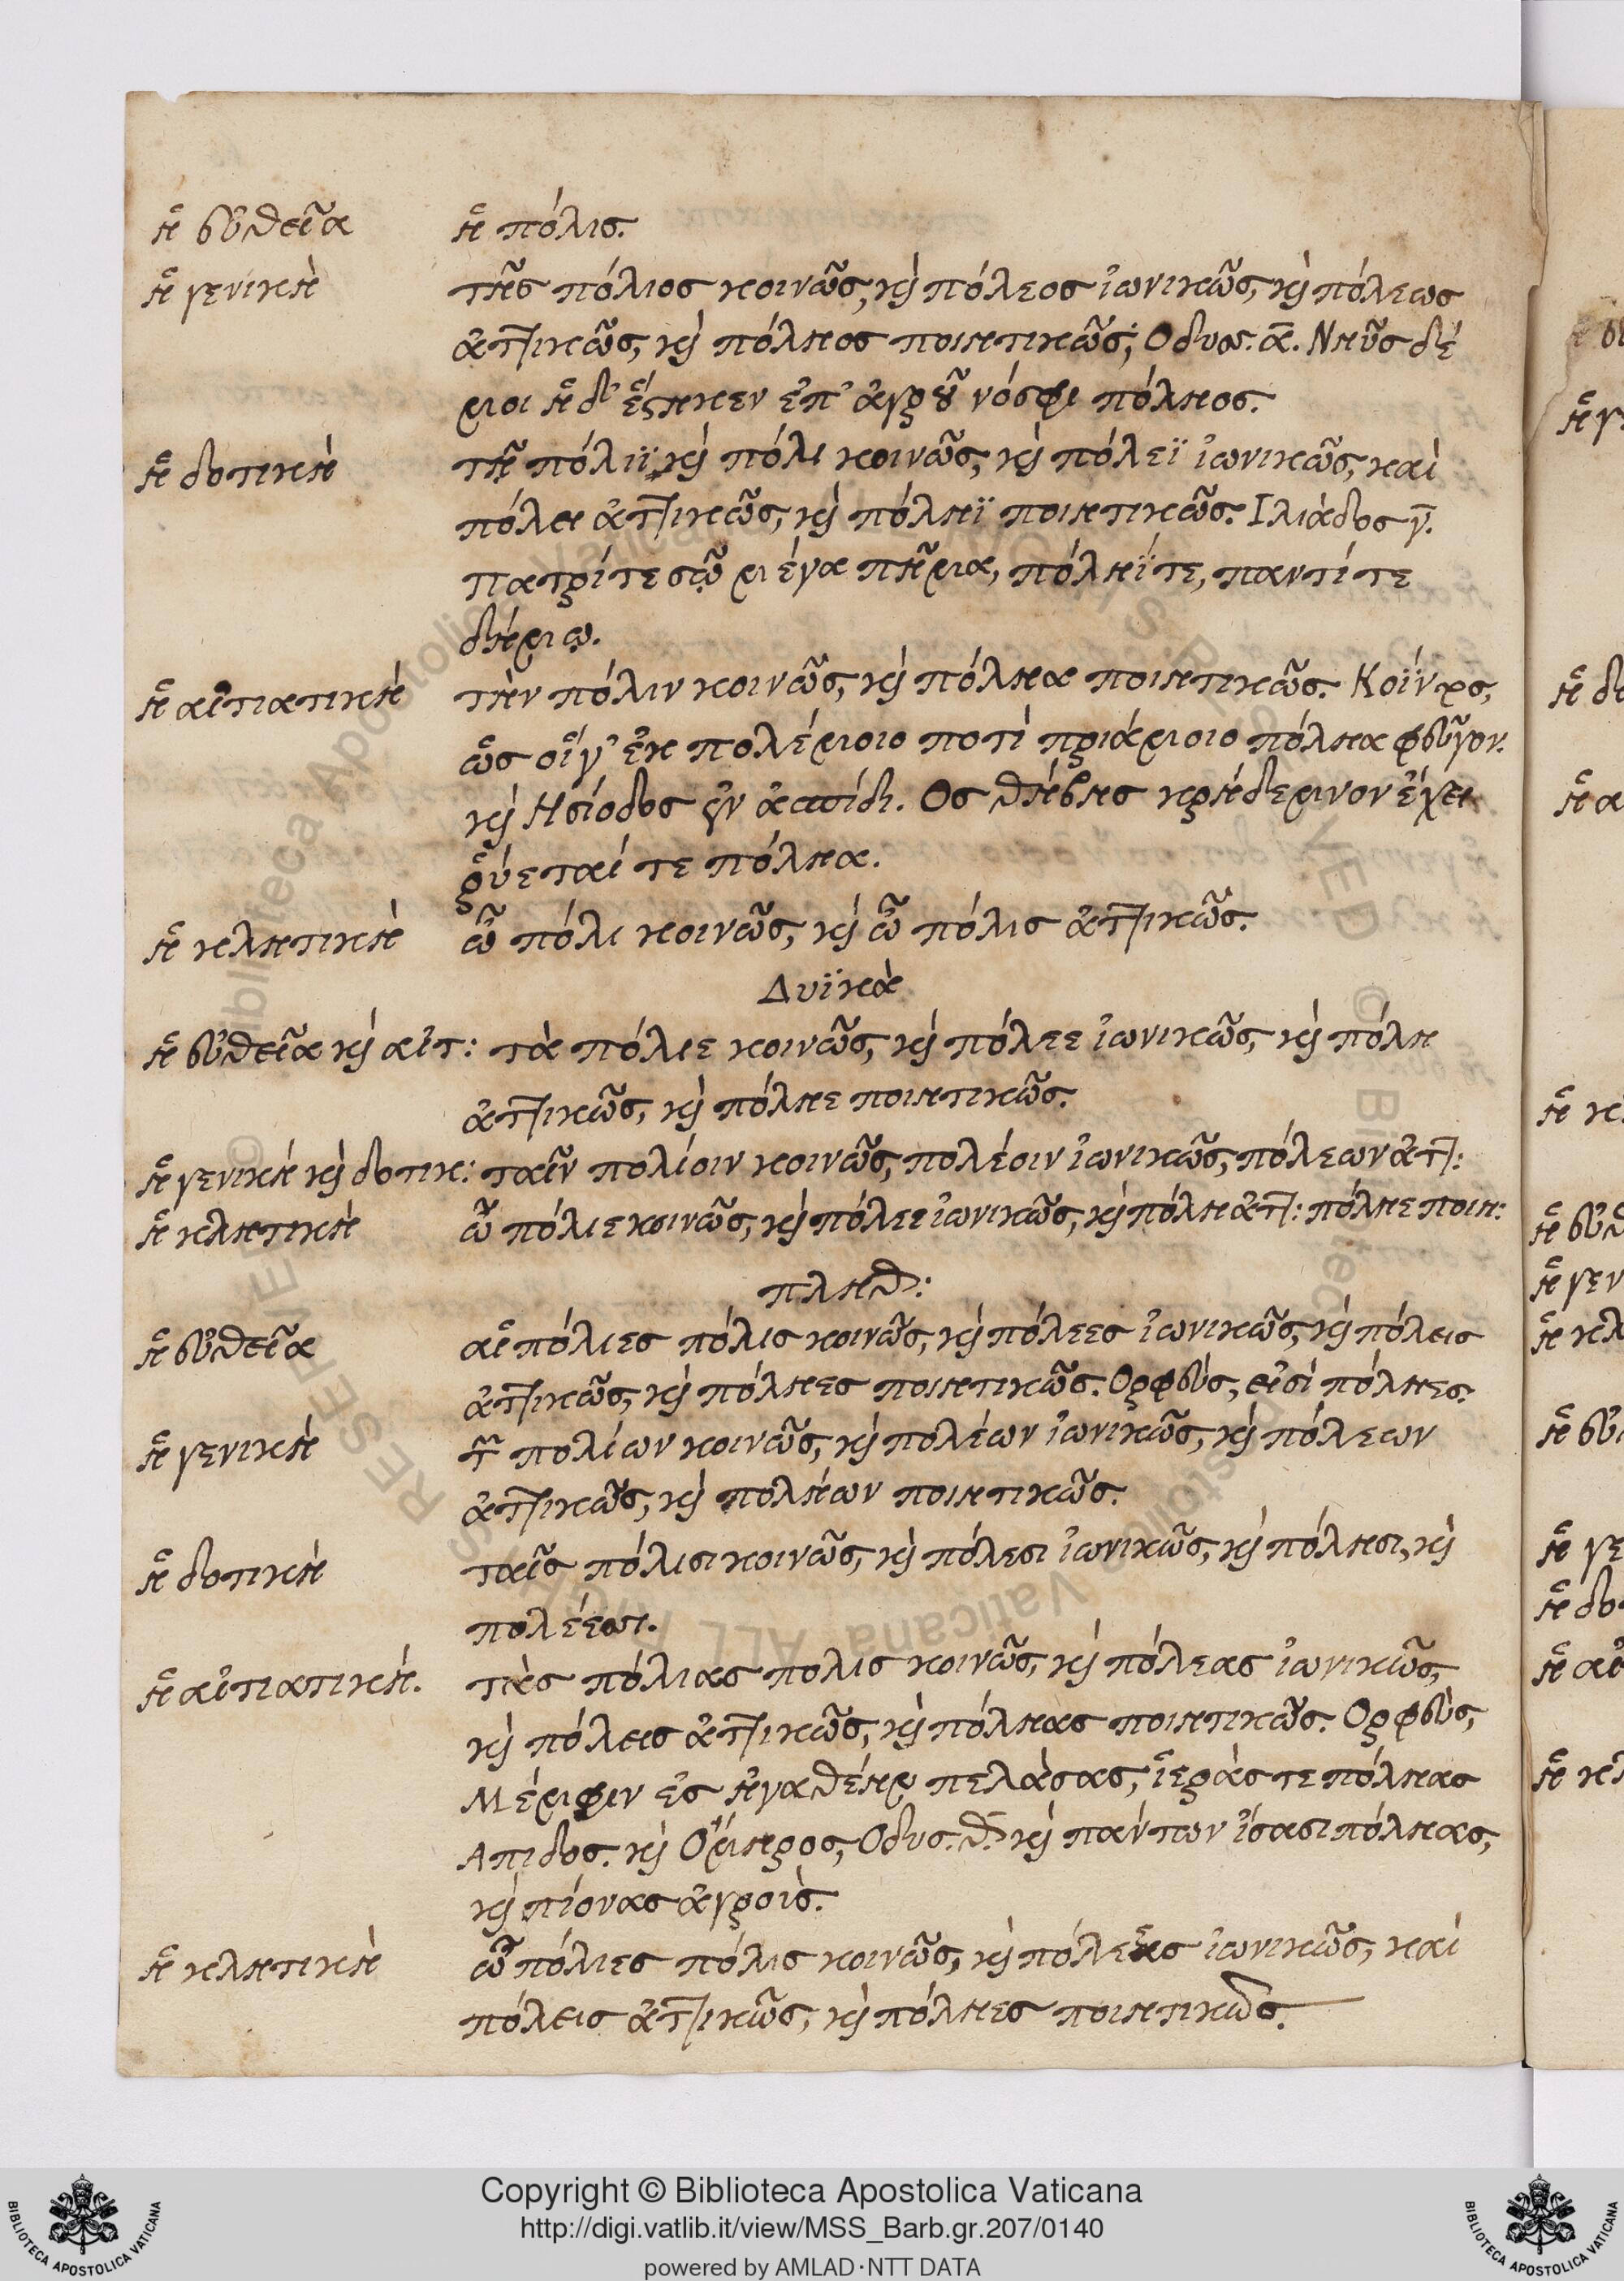 ἡ εὐθεῖα ἡ πόλις.
ἡ γενικὴ τῆς πόλιος κοινῶς, καὶ πόλεος ἰωνικῶς, καὶ πόλεως
ἀττικῶς, καὶ πόληος ποιητικῶς, Οδυσ. α. Νηῦς δέ
μοι ἥδ' ἕστηκεν ἐπ' ἀγροῦ νόσφι πόληος.
ἡ δοτικὴ τῆ πόλιϊ, καὶ πόλι κοινῶς, καὶ πόλεϊ ἰωνικῶς, καὶ
πόλει ἀττικῶς, καὶ πόληϊ ποιητικῶς. Ιλιάδος γ.
πατρί τε σῷ μέγα πῆμα, πόληΐ τε, παντί τε
δήμῳ.
ἡ αἰτιατικὴ τὴν πόλιν κοινῶς, καὶ πόληα ποιητικῶς. Κοΐντος,
ὣς οἵγ' ἐκ πολέμοιο ποτί πριάμοιο πόληα φεῦγον.
καὶ Ησίοδος ἐν ἀσπίδι. Ος θήβης κρήδεμνον ἔχει
ῥύεταί τε πόληα.
ἡ κλητικὴ ὦ πόλι κοινῶς, καὶ ὦ πόλις ἀττικῶς.
Δυϊκὰ
ἡ εὐθεῖα καὶ αἰτ: τὰ πόλιε κοινῶς, καὶ πόλεε ἰωνικῶς, καὶ πόλη
ἀττικῶς, καὶ πόληε ποιητικῶς.
ἡ γενικὴ καὶ δοτικ: ταῖν πολίοιν κοινῶς, πολέοιν ἰωνικῶς, πόλεων ἀττ:
ἡ κλητικὴ ὦ πόλιε κοινῶς, καὶ πόλεε ἰωνικῶς, καὶ πόλη ἀττ: πόληε ποιη:
πληθ:
ἡ εὐθεῖα αἱ πόλιες πόλις κοινῶς, καὶ πόλεες ἰωνικῶς, καὶ πόλεις
ἀττικῶς, καὶ πόληες ποιητικῶς. Ορφεύς, εἰσὶ πόληες.
ἡ γενικὴ τῶν πολίων κοινῶς, καὶ πολέων ἰωνικῶς, καὶ πόλεων
ἀττικῶς, καὶ πολήων ποιητικῶς.
ἡ δοτικὴ ταῖς πόλισι κοινῶς, καὶ πόλεσι ἰωνικῶς, καὶ πόλησι, καὶ
πολέεσσι.
ἡ αἰτιατική. τὰς πόλιας πολις κοινῶς, καὶ πόλεας ἰωνικῶς,
καὶ πόλεις ἀττικῶς, καὶ πόληας ποιητικῶς. Ορφεύς,
Μέμφιν ἐς ἠγαθέην πελάσας, ἱεράς τε πόληας
Απιδος. καὶ Ὅμηρος, Οδυσ. θ. καὶ πάντων ἴσασι πόληας,
καὶ πίονας ἀγροὺς.
ἡ κλητικὴ ὦ πόλιες πόλις κοινῶς, καὶ πόλεες ἰωνικῶς, καὶ
πόλεις ἀττικῶς, καὶ πόληες ποιητικῶς.
Copyright © Biblioteca Apostolica Vaticana
http://digi.vatlib.it/view/MSS_Barb.gr.207/0140
powered by AMLAD·NTT DATA
BIBLIOTECA APOSTOLICA VATICANA
BIBLIOTECA APOSTOLICA VATICANA